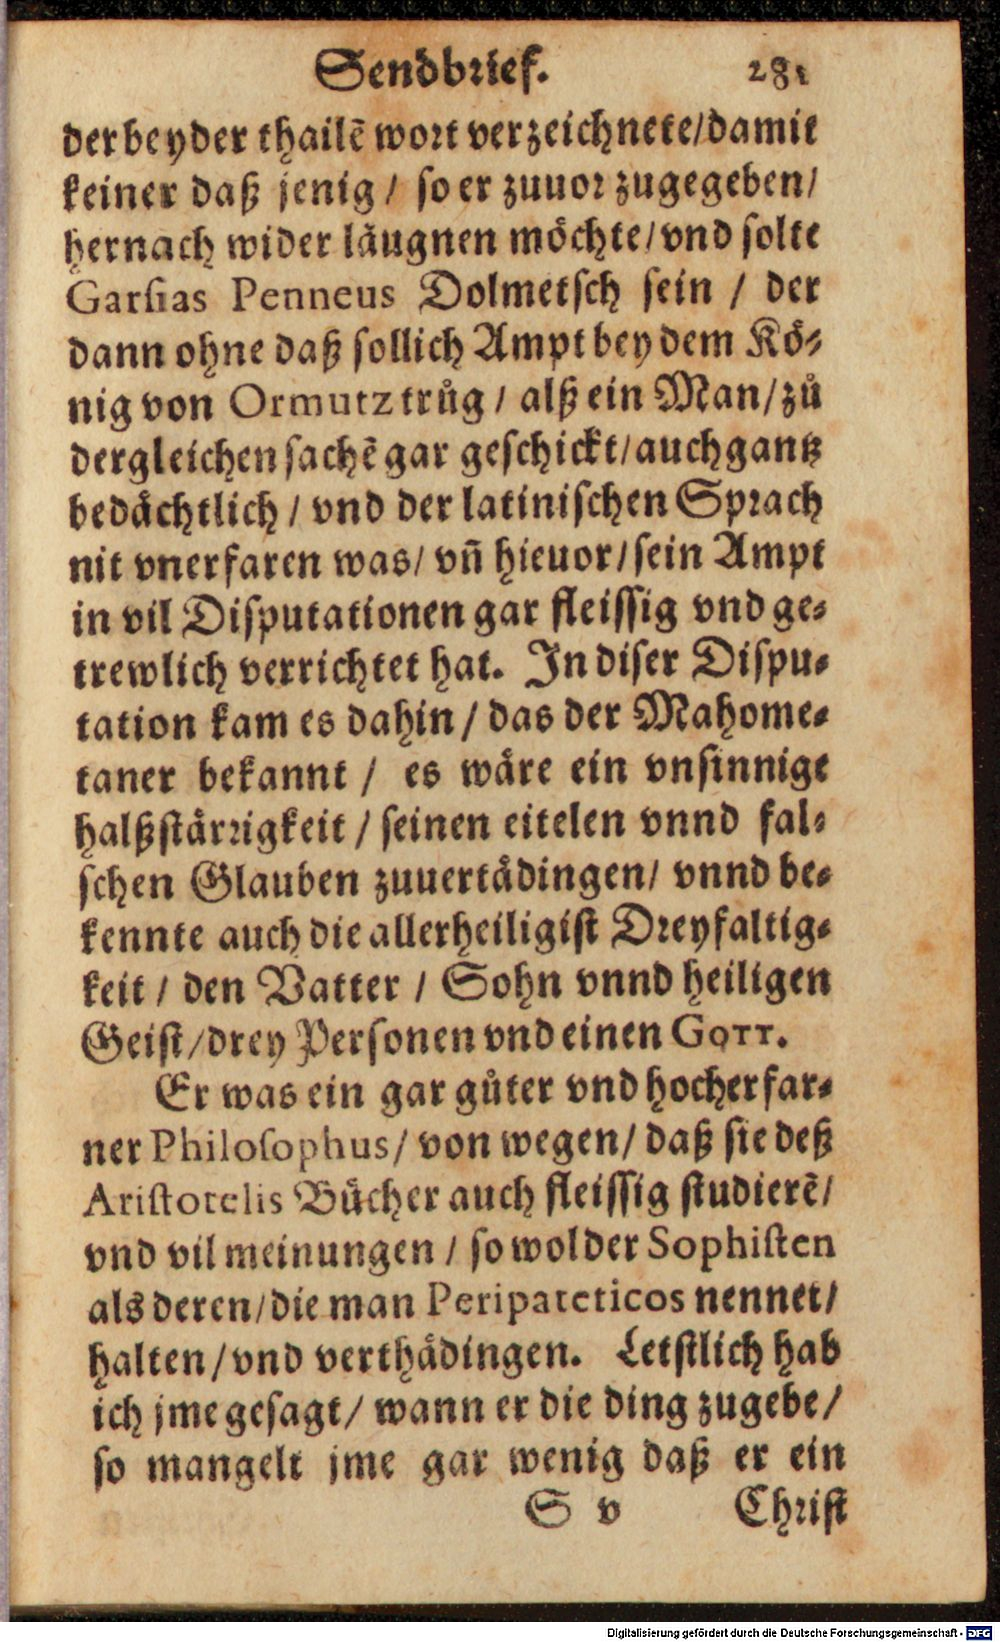 Sendbrief. 281
der beyder thailẽ wort verzeichnete/damit
keiner daß jenig / so er zuuor zugegeben/
hernach wider läugnen möchte/vnd solte
Garsias Penneus Dolmetsch sein / der
dann ohne daß sollich Ampt bey dem Kö-
nig von Ormutz trůg / alß ein Man/zů
dergleichen sachẽ gar geschickt/auch gantz
bedächtlich / vnd der latinischen Sprach
nit vnerfaren was/ vñ hieuor/sein Ampt
in vil Disputationen gar fleissig vnd ge-
trewlich verrichtet hat. In diser Dispu-
tation kam es dahin / das der Mahome-
taner bekannt / es wäre ein vnsinnige
halßstärrigkeit / seinen eitelen vnnd fal-
schen Glauben zuuertädingen/ vnnd be-
kennte auch die allerheiligist Dreyfaltig-
keit / den Vatter / Sohn vnnd heiligen
Geist/drey Personen vnd einen GOTT.
Er was ein gar gůter vnd hocherfar-
ner Philosophus/ von wegen/ daß sie deß
Aristotelis Bücher auch fleissig studierẽ/
vnd vil meinungen / so wol der Sophisten
als deren/die man Peripateticos nennet/
halten/vnd verthädingen. Letstlich hab
ich jme gesagt/ wann er die ding zugebe/
so mangelt jme gar wenig daß er ein
S v Christ
Digitalisierung gefördert durch die Deutsche Forschungsgemeinschaft - DFG